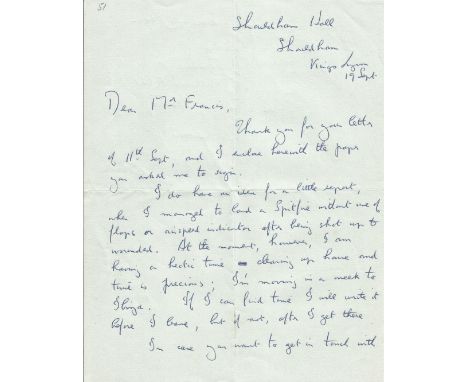 51
Shouldham Hall
Shouldham
Kings Lynn
19 Sept
Dear Mr Francis,
Thank you for your letter
of 11th Sept, and I enclose herewith the paper
you asked me to sign.
I do have an idea for a little report,
when I managed to land a Spitfire without use of
flaps or airspeed indicator after being shot up &
wounded. At the moment, however, I am
having a hectic time clearing up house and
time is precious; I'm moving in a week to
Ibiza. If I can find time I will write it
before I leave, but if not, after I get there
In case you want to get in touch with